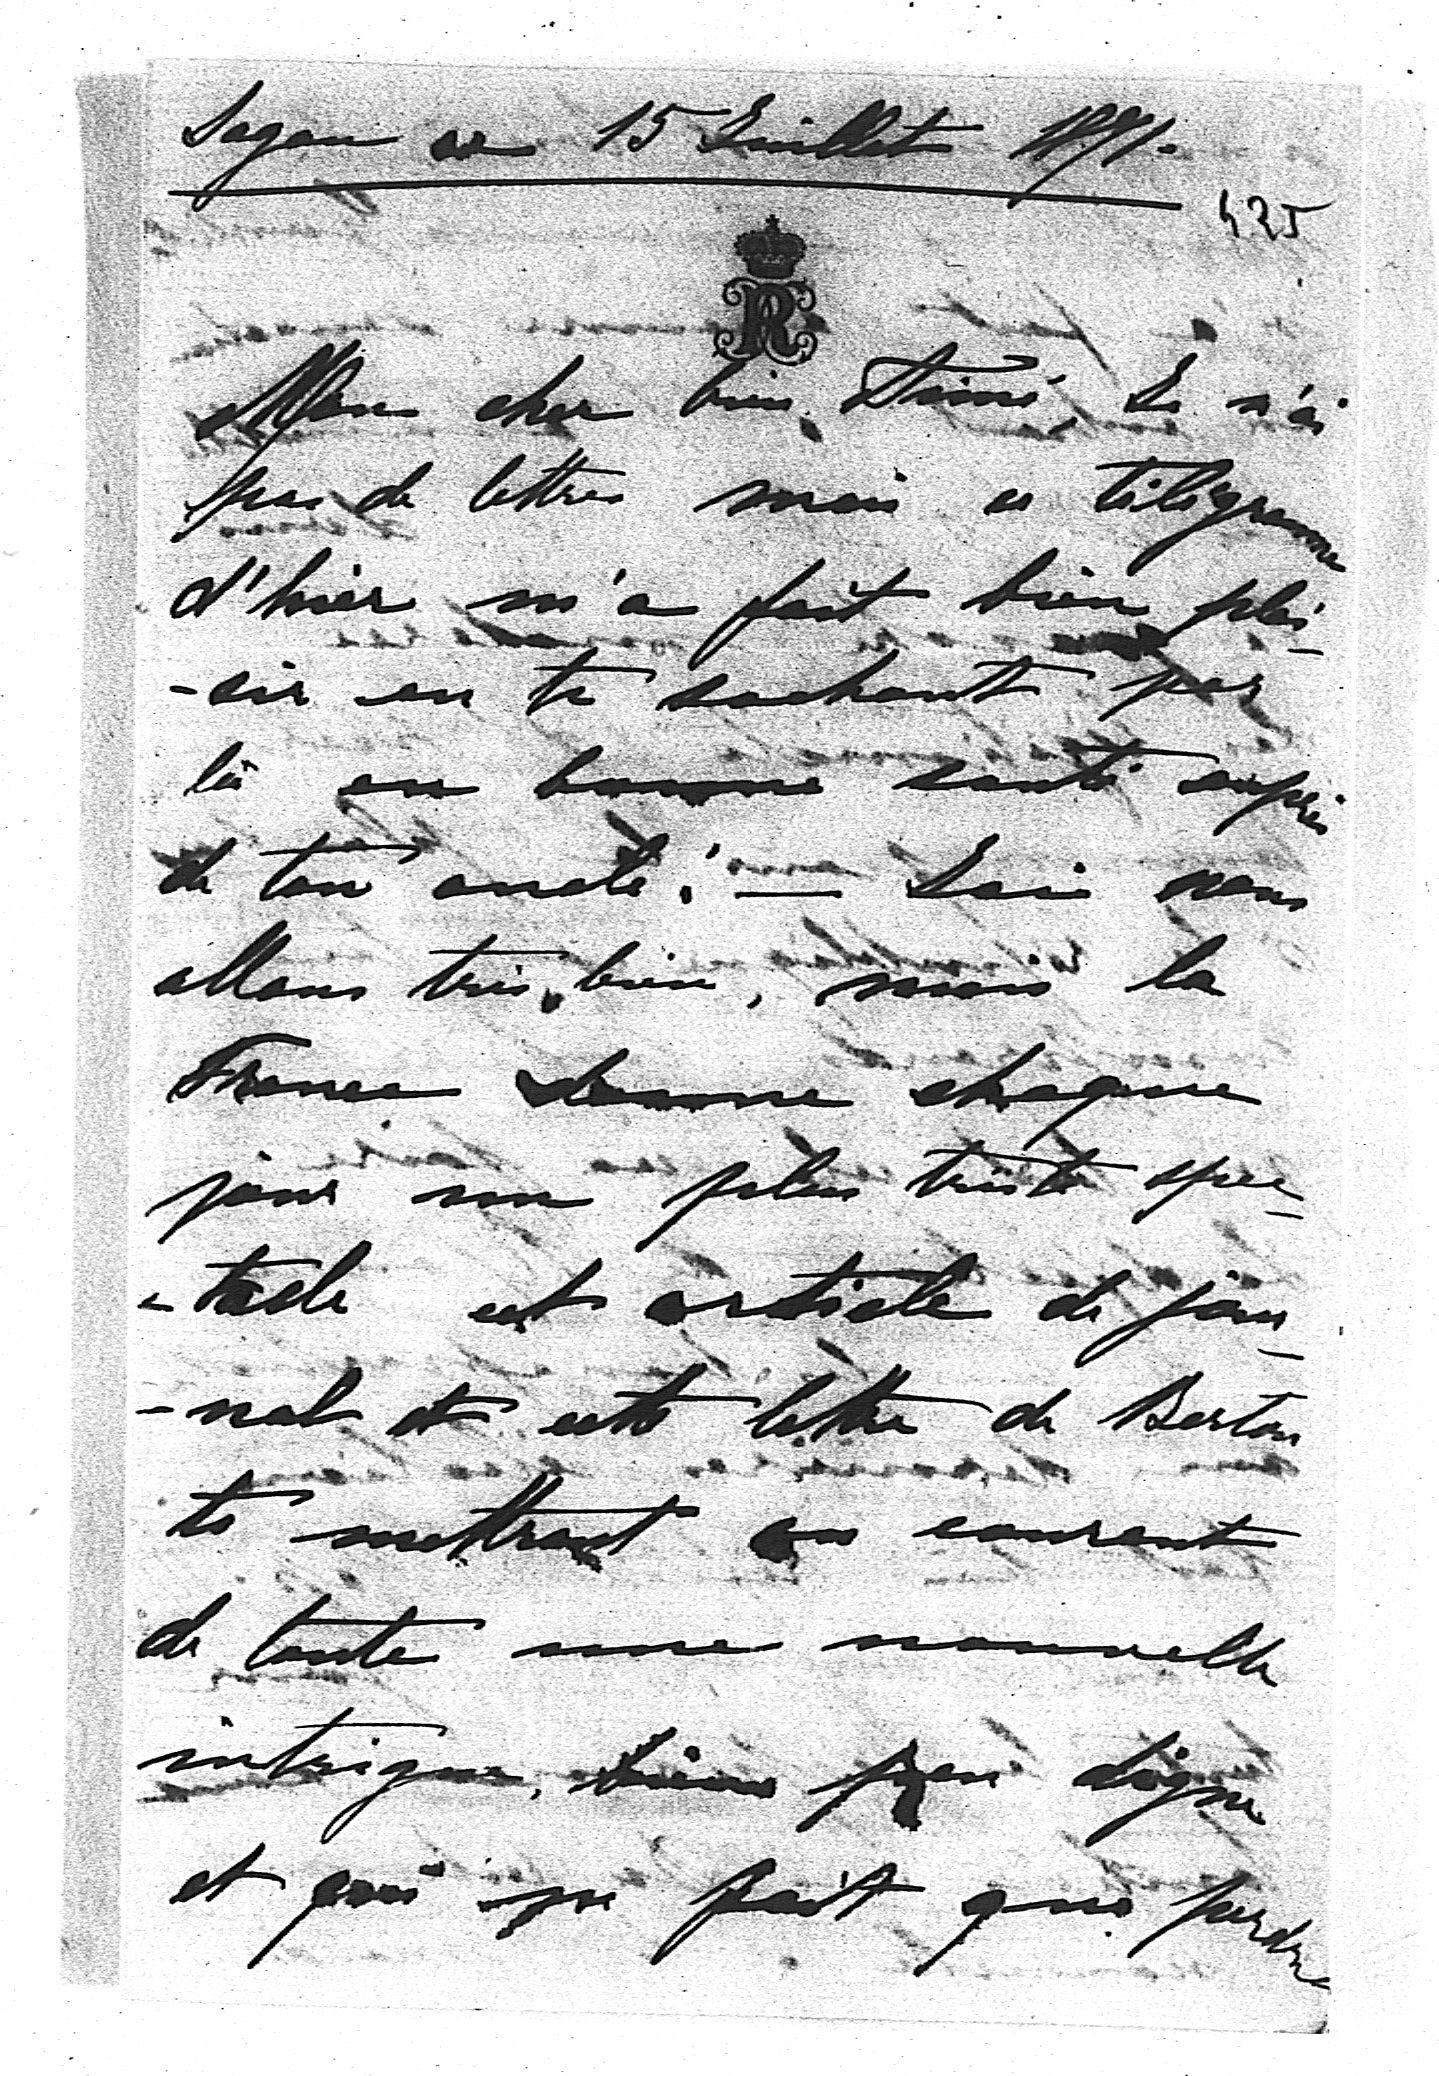 Sagan ce 15 Juillet 1891.
425
R
Mon cher bien Aimé, Je n'ai
pas de lettres mais ce télégramme
d'hier m'a fait bien plai-
-sir en te sachant par
là en bonne santé auprès
de ton oncle! — Ici nous
allons très bien, mais la
France donne chaque
jour un plus triste spec-
-tacle cet article de jour-
-nal et cette lettre de Berton
te mettront au courant
de toute une nouvelle
intrigue, bien peu digne
et qui ne fait que perdre